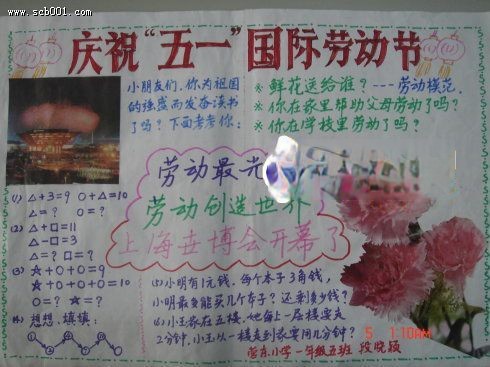 www.scb001.com
庆祝“五一”国际劳动节
小朋友们，你为祖国
的强盛而发奋读书
了吗？下面考考你：
※鲜花送给谁？---劳动模范.
※你在家里帮助父母劳动了吗？
※你在学校里劳动了吗？
劳动最光
劳动创造世界
上海世博会开幕了
(1) △+3=9 O+△=10
△=？ O=？
(2) △+□=11
△-□=3
△=？□=？
(3) ☆+O+O=9
☆+☆+O+O+O=10
O=？ ☆=？
(4) 想想，填填：
(5) 小明有1元钱，每个本子3角钱，
小明最多能买几个本子？还剩多少钱？
(6) 小玉家在五楼，她每上一层楼要走
2分钟，小玉从一楼走到家要用几分钟？
5 1:10AM
小学一年级五班 段晓颖